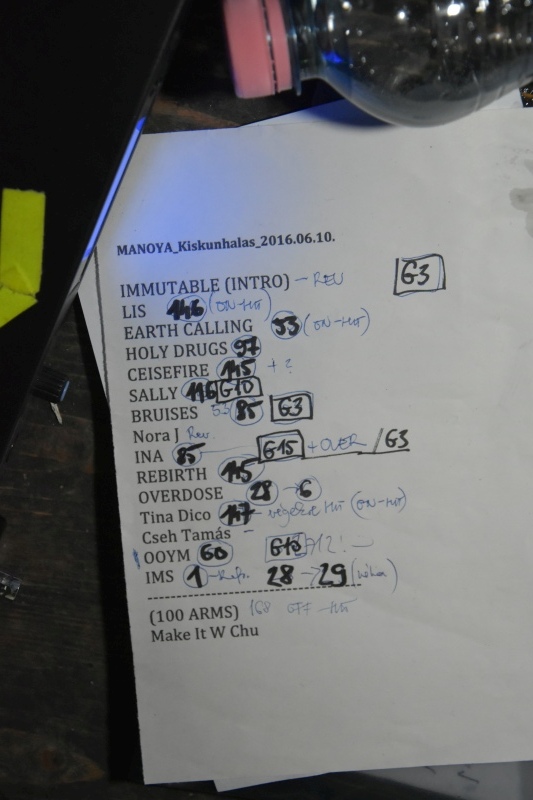 MANOYA_Kiskunhalas_2016.06.10.
IMMUTABLE (INTRO) - REV G3
LIS 146 (ON-HIT)
EARTH CALLING 93 (ON-HIT)
HOLY DRUGS 97
CEISEFIRE 145 + ?
SALLY 146 G10
BRUISES 85 G3
Nora J Rev.
INA 85 G15 + OVER / G3
REBIRTH 145
OVERDOSE 28 → 6
Tina Dico 147 - HIT (ON-HIT)
Cseh Tamás -
OOYM 60
IMS 1 - 28 → 29
(100 ARMS) 168 OFF - HIT
Make It W Chu